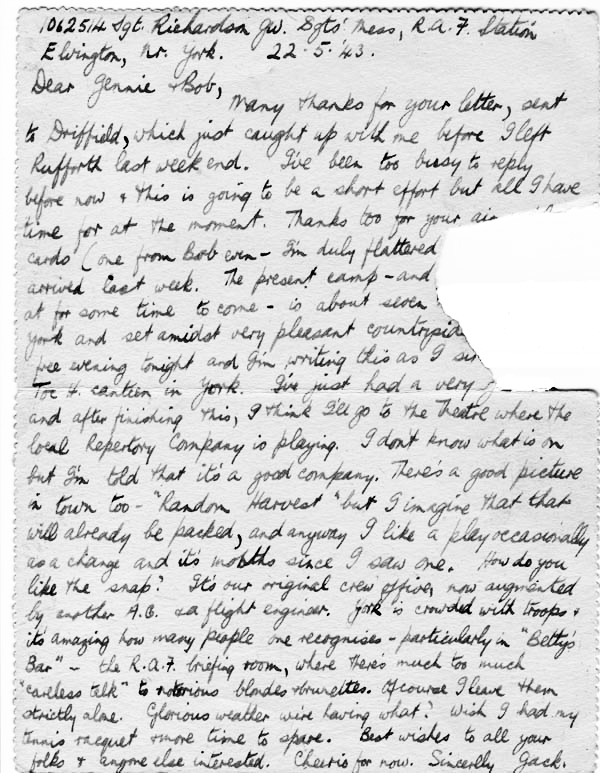 1062514 Sgt. Richardson Jw. Sgts' Mess, R.A.F. Station
Elvington, Nr. York. 22.5.'43.
Dear Jennie & Bob,
Many thanks for your letter, sent
to Driffield, which just caught up with me before I left
Rufforth last week end. I've been too busy to reply
before now & this is going to be a short effort but all I have
time for at the moment. Thanks too for your
cards (one from Bob even - I'm duly flattered
arrived last week. The present camp - and
at for some time to come - is about seven
York and set amidst very pleasant
free evening tonight and I'm writing this as I
Toc H. canteen in York. I've just had a very
and after finishing this, I think I'll go to the Theatre where the
local Repertory Company is playing. I don't know what is on
but I'm told that it's a good company. There's a good picture
in town too - "Random Harvest" but I imagine that that
will already be packed, and anyway I like a play occasionally
as a change and it's months since I saw one. How do you
like the snap? It's our original crew of five, now augmented
by another A.G. & a flight engineer. York is crowded with troops &
it's amazing how many people one recognises - particularly in "Betty's
Bar" - the R.A.F. briefing room, where there's much too much
"careless talk" to notorious blondes & brunettes. Of course I leave them
strictly alone. Glorious weather we're having what? Wish I had my
tennis racquet & more time to spare. Best wishes to all your
folks & anyone else interested. Cheerio for now. Sincerely Jack.